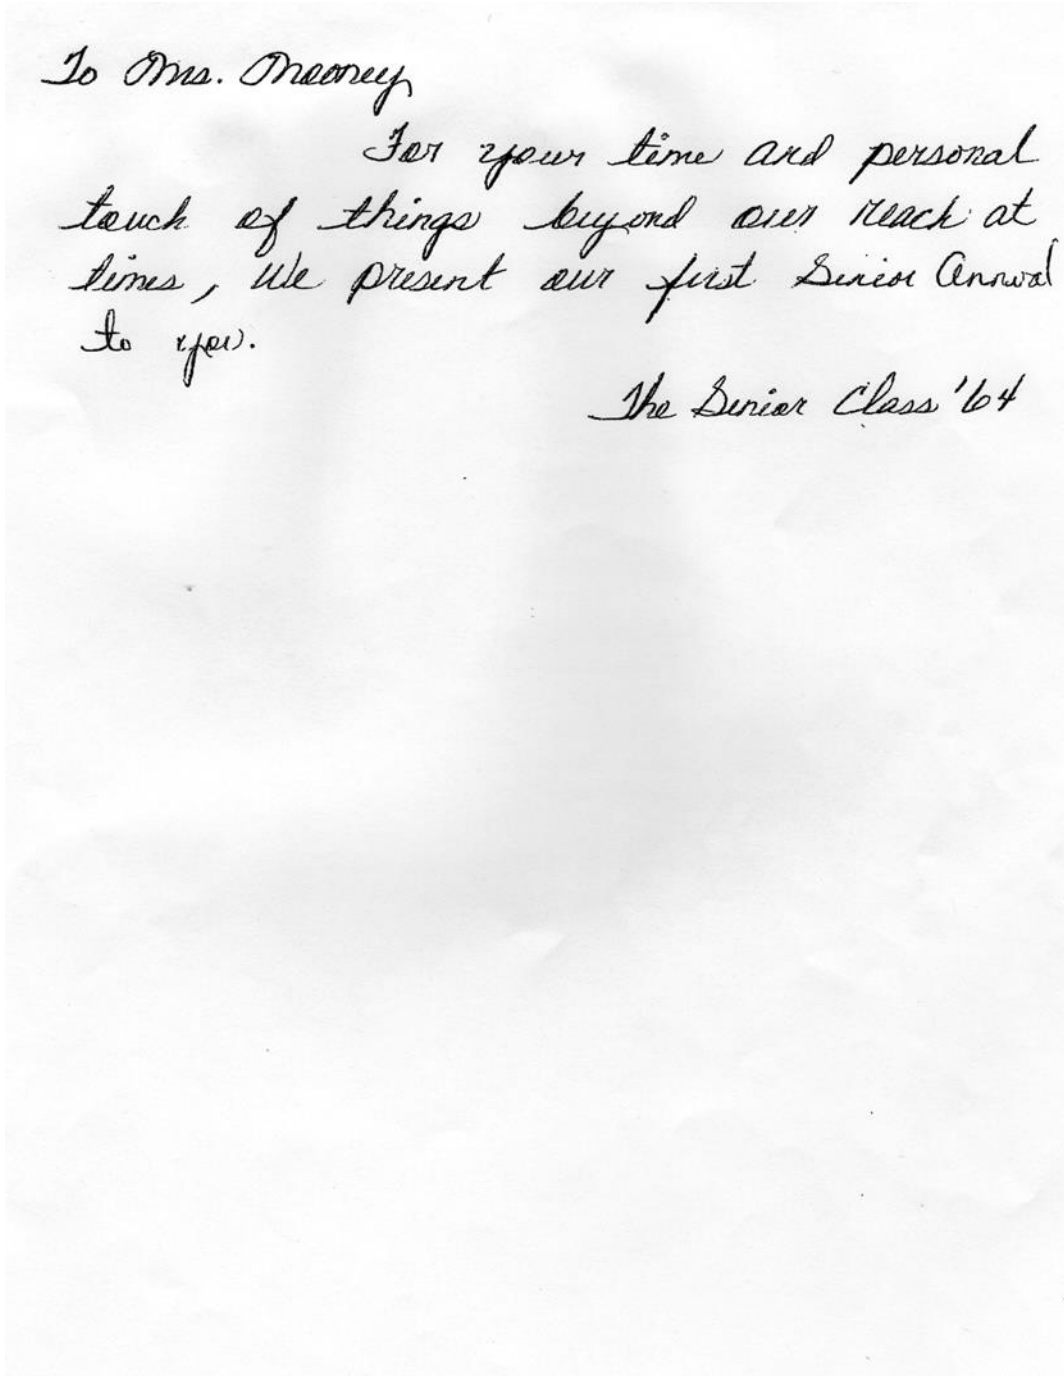 To Ms. Mooney
For your time and personal
touch of things beyond our reach at
times, We present our first Senior Annual
to you.
The Senior Class '64